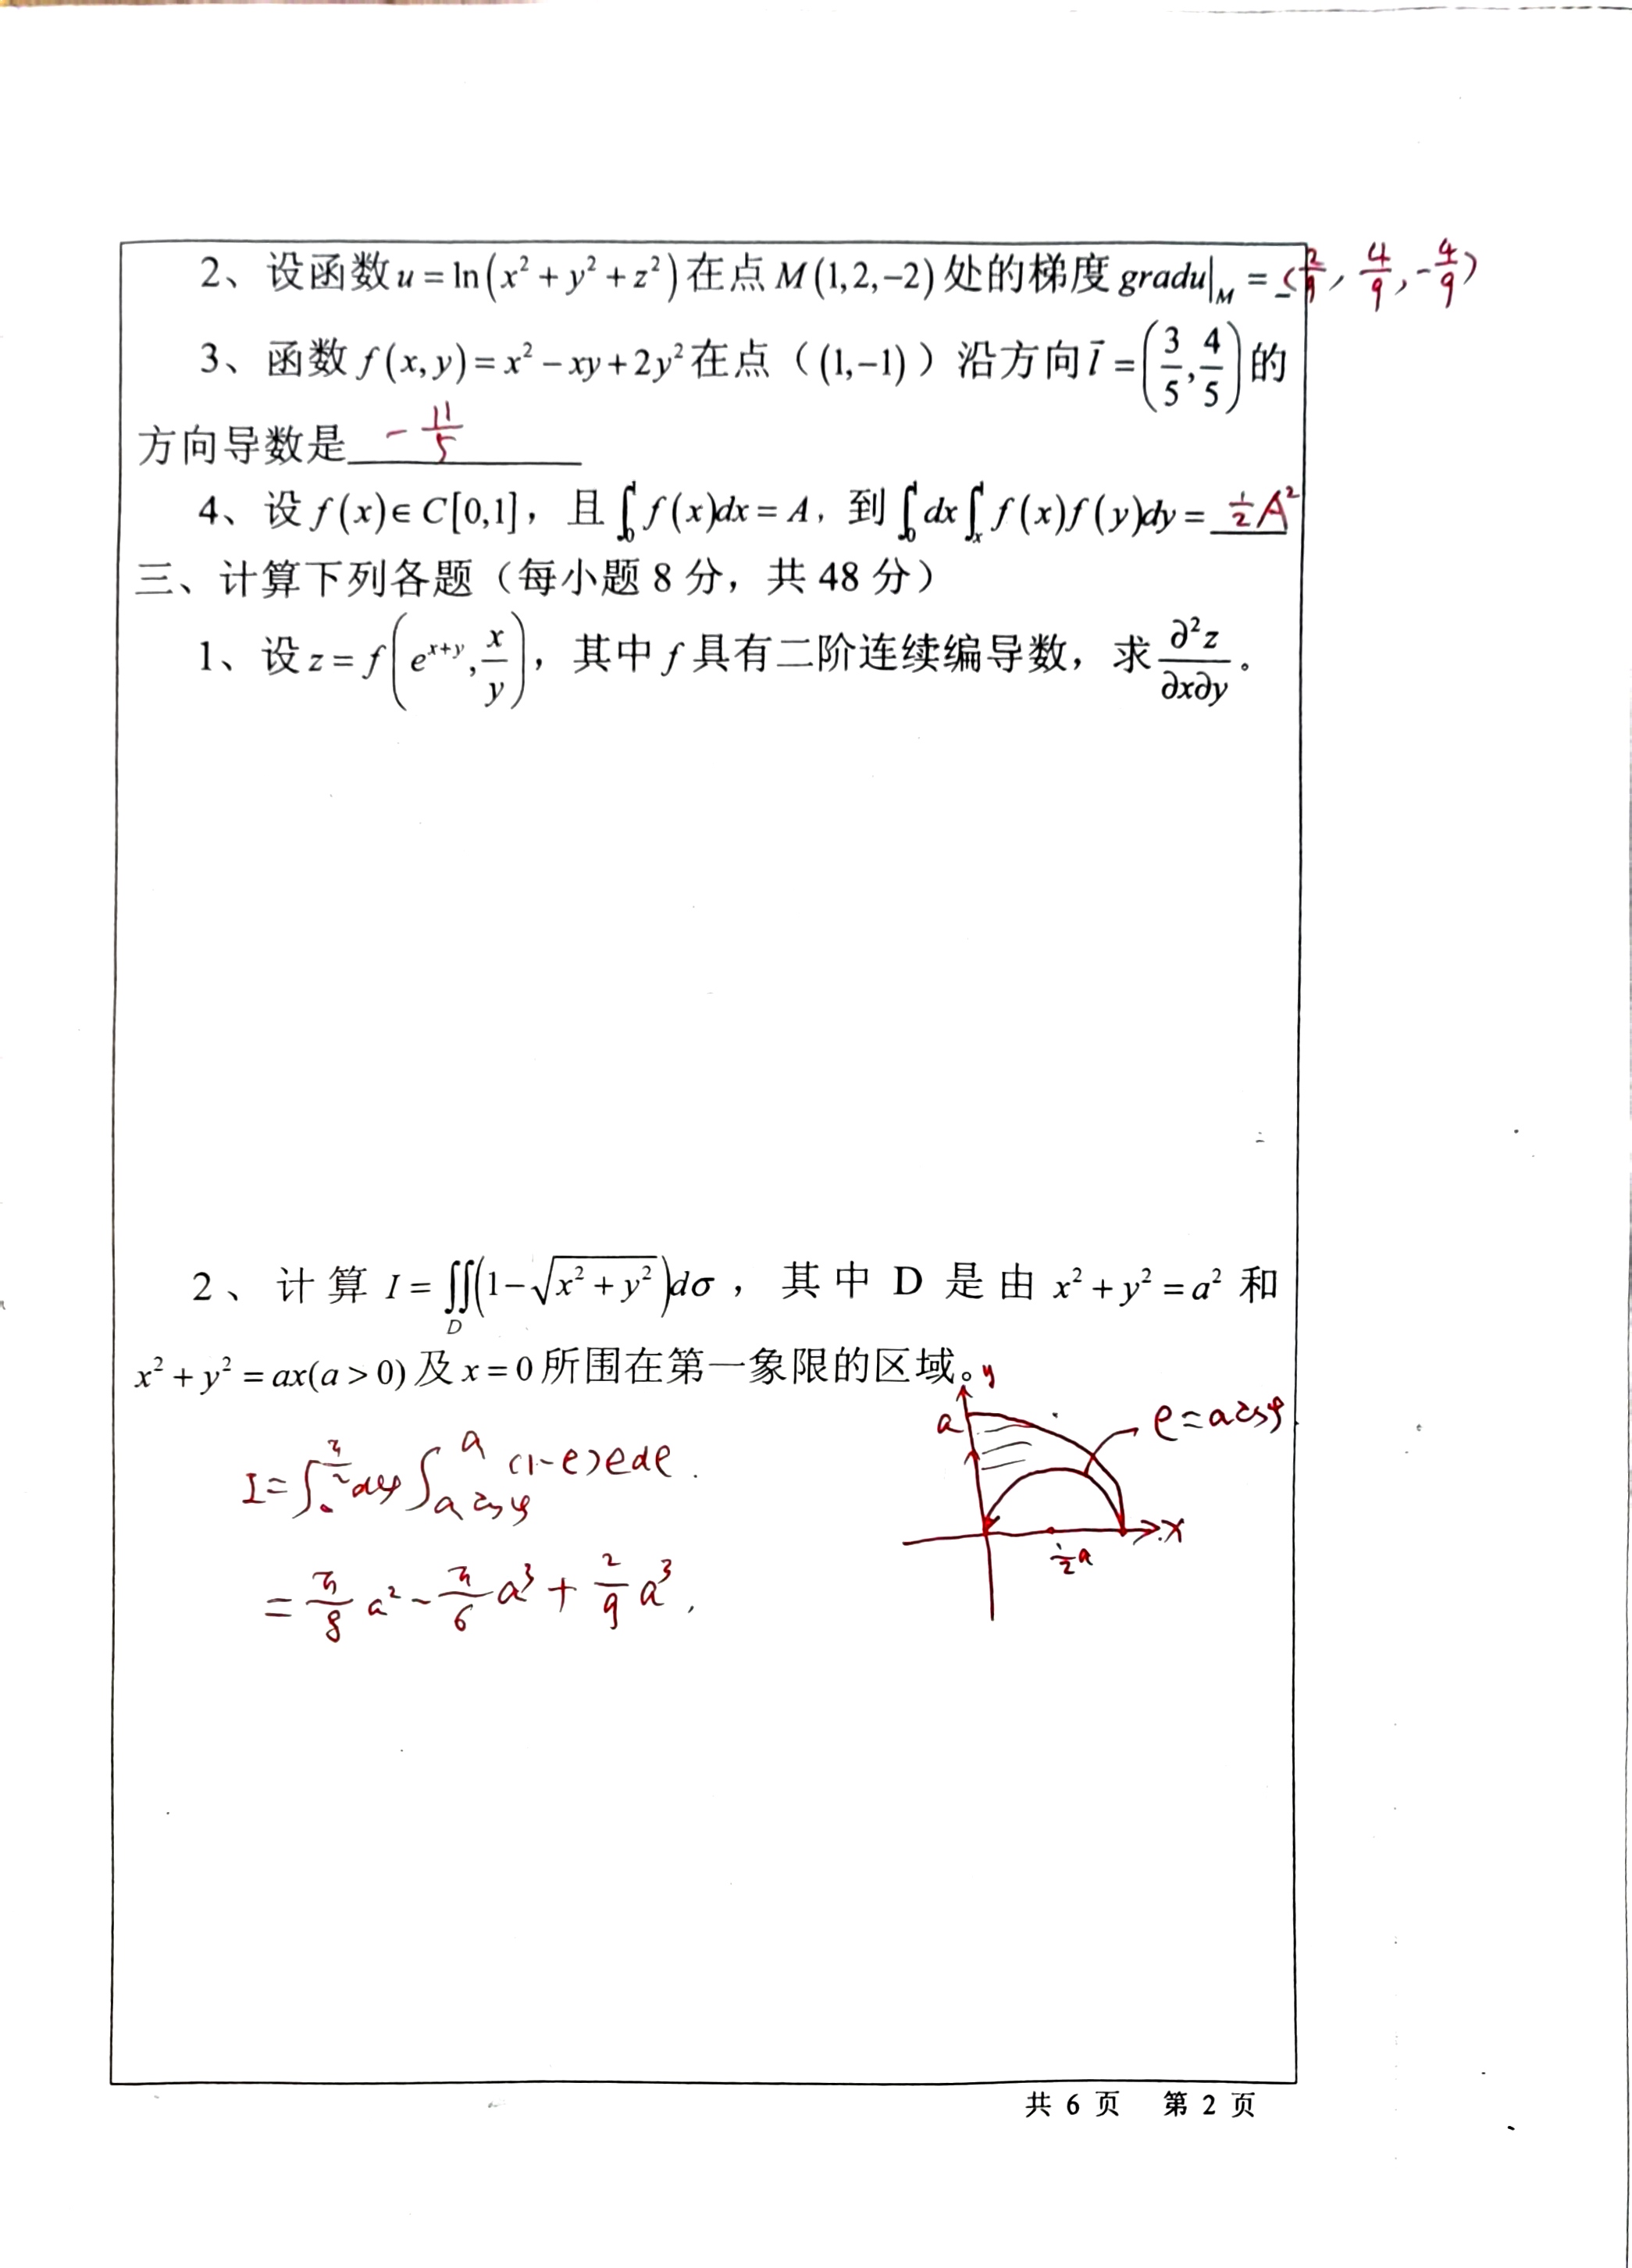 2、设函数 u = ln(x² + y² + z²) 在点 M(1,2,−2) 处的梯度 gradu|_M = (2/9, 4/9, -4/9)
3、函数 f(x,y) = x² − xy + 2y² 在点（(1,−1)）沿方向 l⃗ = (3/5, 4/5) 的
方向导数是 - 11/5
4、设 f(x) ∈ C[0,1]，且 ∫₀¹ f(x)dx = A，到 ∫₀¹ dx ∫ₓ¹ f(x)f(y)dy = 1/2 A²
三、计算下列各题（每小题 8 分，共 48 分）
1、设 z = f(e^{x+y}, x/y)，其中 f 具有二阶连续编导数，求 ∂²z/∂x∂y。
2、计算 I = ∬_D (1 − √(x² + y²)) dσ，其中 D 是由 x² + y² = a² 和
x² + y² = ax(a > 0) 及 x = 0 所围在第一象限的区域。
y
a
ρ = a cosφ
I = ∫₀^{π/2} dφ ∫_{a cosφ}^{a} (1-ρ)ρdρ.
x
1/2 a
= π/8 a² - π/6 a³ + 2/9 a³.
共 6 页 第 2 页